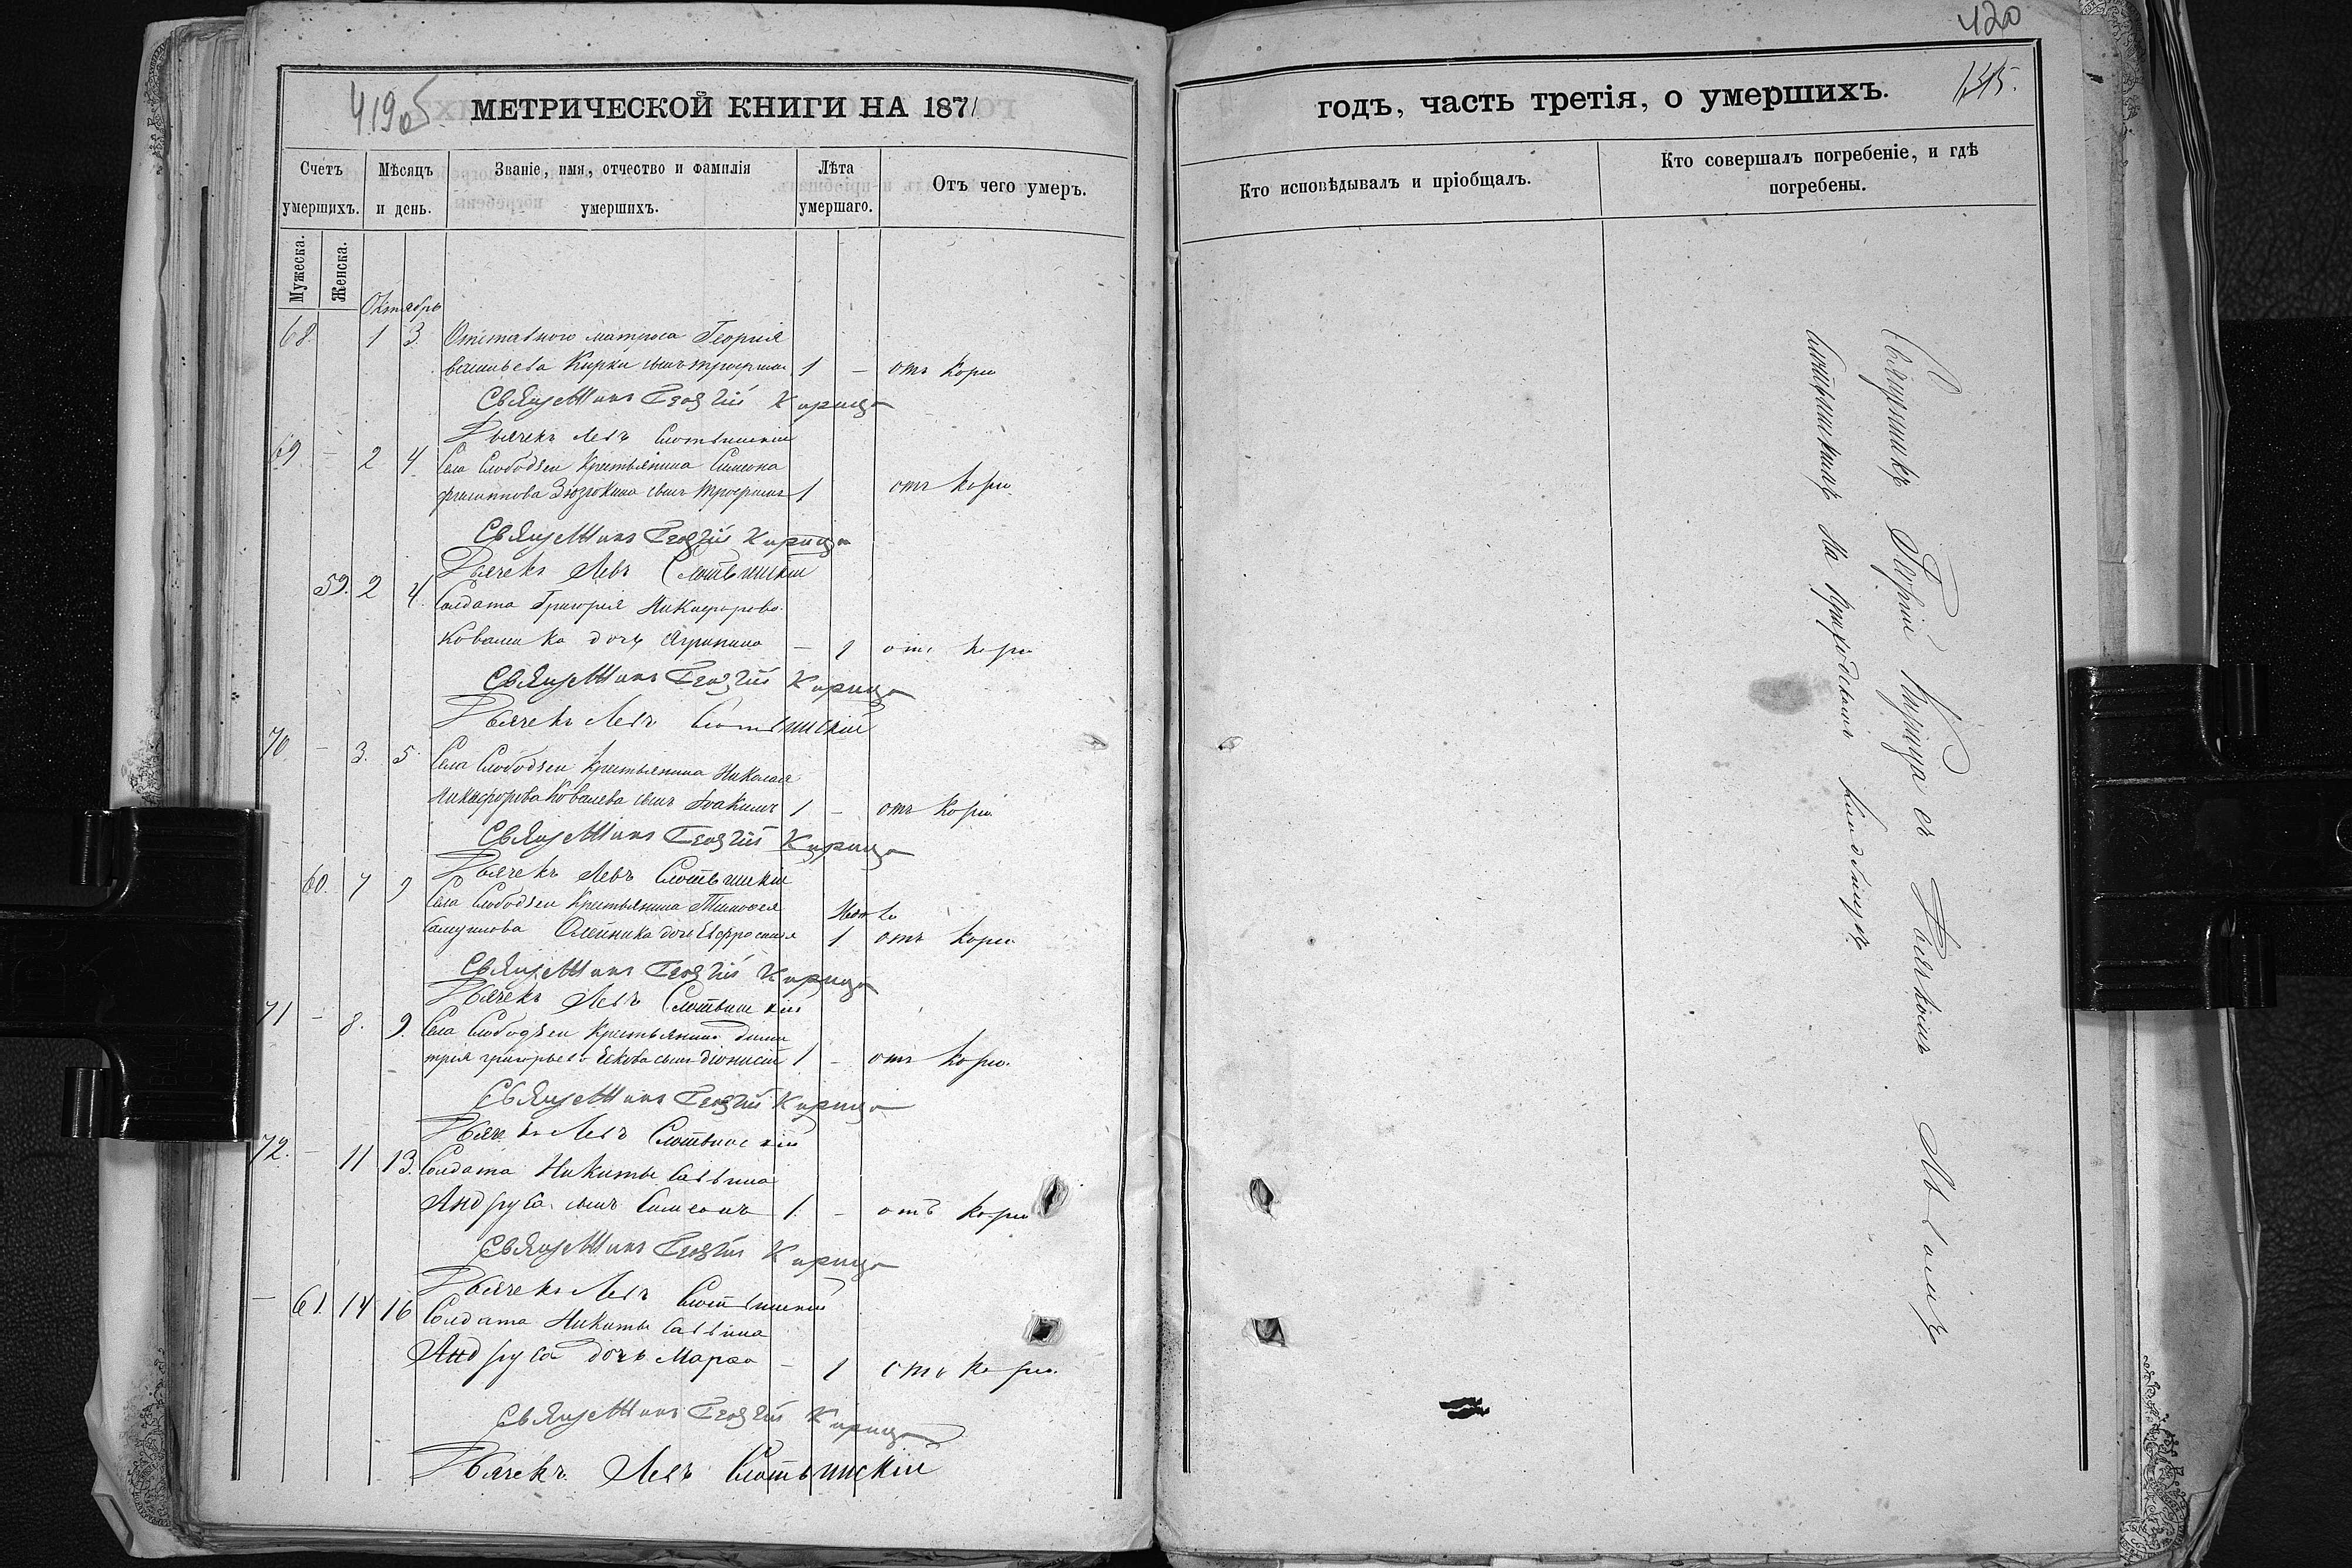 419об.
МЕТРИЧЕСКОЙ КНИГИ НА 1871
Счетъ умершихъ.
Мѣсяцъ и день.
Званіе, имя, отчество и фамилія умершихъ.
Лѣта умершаго.
Отъ чего умеръ.
Мужеска.
Женска.
Октябрь
68. 1 3. Отставного матроса Георгія
Васильева Кирки сынъ Трофимъ 1 – отъ кори
Священникъ Георгій Кирица
Дьячекъ Левъ Слотвинскій
69. – 2 4 Села Слободзеи Крестьянина Симеона
Филиппова сынъ Трофимъ 1 отъ кори.
Священникъ Георгій Кирица
Дьячекъ Левъ Слотвинскій
59. 2 4. Солдата Григорія Никифорова
Ковалика дочь Агрипина – 1 отъ кори
Священникъ Георгій Кирица
Дьячекъ Левъ Слотвинскій
70. – 3. 5. Села Слободзеи Крестьянина Николая
Никифорова Ковалева сынъ Іоакимъ 1 – отъ кори.
Священникъ Георгій Кирица
Дьячекъ Левъ Слотвинскій
60. 7 9 Села Слободзеи Крестьянина Тимофея
Олейника дочь Евфросинія 1. отъ кори
Священникъ Георгій Кирица
Дьячекъ Левъ Слотвинскій
71 – 8. 9. Села Слободзеи Крестьянина Дими
трія Григорьева Ескова сынъ Діонисій 1 – отъ кори.
Священникъ Георгій Кирица
Дьячекъ Левъ Слотвинскій
72. – 11 13. Солдата Никиты Саввина
Андруса сынъ Симеонъ 1. – отъ кори
Священникъ Георгій Кирица
Дьячекъ Левъ Слотвинскій
– 61. 14 16 Солдата Никиты Саввина
Андруса дочь Марѳа – 1 отъ кори.
Священникъ Георгій Кирица
Дьячекъ Левъ Слотвинскій
420
годъ, часть третія, о умершихъ.
Кто исповѣдывалъ и пріобщалъ.
Кто совершалъ погребеніе, и гдѣ погребены.
Священникъ Георгій Кирица съ Дьячкомъ Львомъ
Слотвинскимъ на приходскомъ кладбищѣ